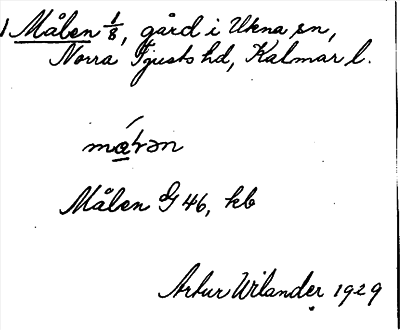 1 Målen 1/8, gård i Ukna sn,
Norra Tjusts hd, Kalmar l.
Målen G 46, kb
Artur Wilander 1929